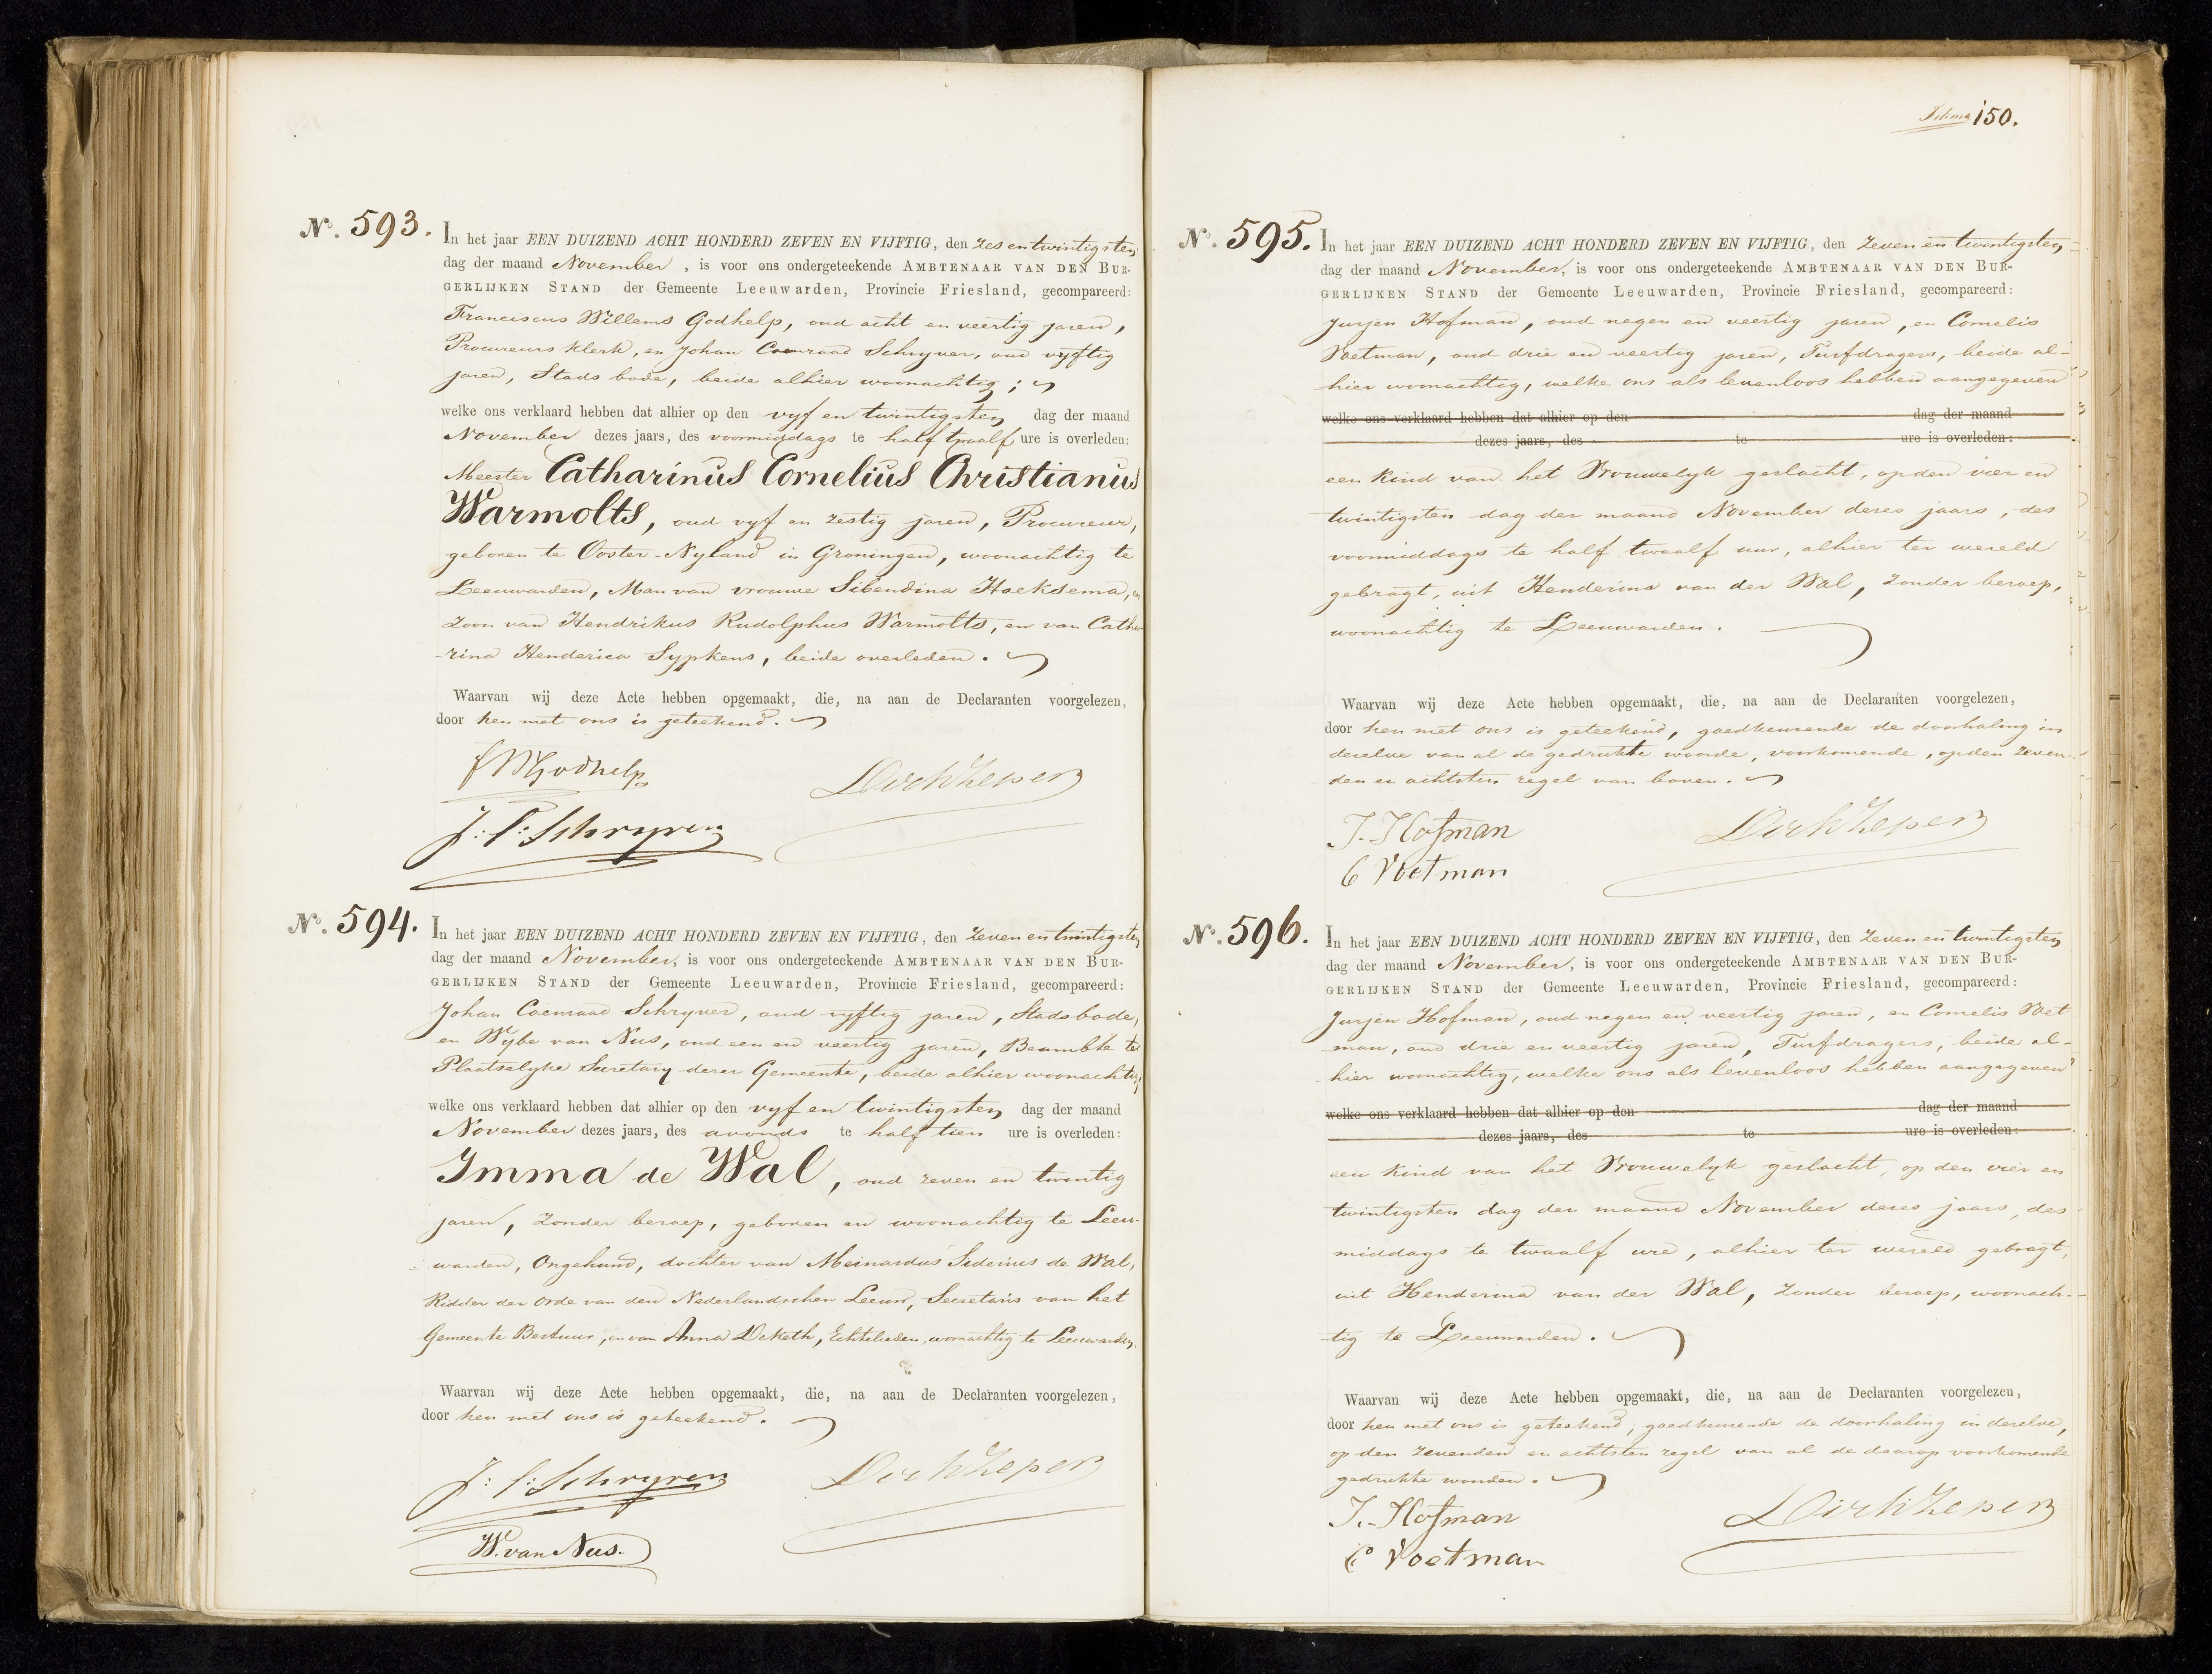 150.
No. 593.
In het jaar EEN DUIZEND ACHT HONDERD ZEVEN EN VIJFTIG, den zes en twintigsten
dag der maand November, is voor ons ondergeteekende AMBTENAAR VAN DEN BUR-
GERLIJKEN STAND der Gemeente Leeuwarden, Provincie Friesland, gecompareerd:
Franciscus Willems Godhelp, oud acht en veertig jaren,
Procureurs klerk, en Johan Coenraad Schryver, oud vyftig
jaren, Stads bode, beide alhier woonachtig;
welke ons verklaard hebben dat alhier op den vyf en twintigsten dag der maand
November dezes jaars, des voormiddags te half twaalf ure is overleden:
Meester Catharinus Cornelius Christianus
Warmolts, oud vyf en zestig jaren, Procureur,
geboren te Ooster-Nyland in Groningen, woonachtig te
Leeuwarden, Man van vrouwe Sibendina Hoeksema, en
Zoon van Hendrikus Rudolphus Warmolts, en van Catha-
rina Henderica Sypkens, beide overleden.
Waarvan wij deze Acte hebben opgemaakt, die, na aan de Declaranten voorgelezen,
door hen met ons is geteekend.
FWGodhelp
DirkZeper
J: C: Schryver
No. 594.
In het jaar EEN DUIZEND ACHT HONDERD ZEVEN EN VIJFTIG, den zeven en twintigsten
dag der maand November, is voor ons ondergeteekende AMBTENAAR VAN DEN BUR-
GERLIJKEN STAND der Gemeente Leeuwarden, Provincie Friesland, gecompareerd:
Johan Coenraad Schryver, oud vyftig jaren, Stadsbode,
en Wybe van Nus, oud een en veertig jaren, Beambte ter
Plaatselyke Secretary dezer Gemeente, beide alhier woonachtig,
welke ons verklaard hebben dat alhier op den vyf en twintigsten dag der maand
November dezes jaars, des avonds te half tien ure is overleden:
Imma de Wal, oud zeven en twintig
jaren, zonder beroep, geboren en woonachtig te Leeu-
warden, Ongehuwd, dochter van Meinardus Siderius de Wal,
Ridder der Orde van den Nederlandschen Leeuw, Secretaris van het
Gemeente Bestuur, en van Anna Deketh, Echtelieden, woonachtig te Leeuwarden.
Waarvan wij deze Acte hebben opgemaakt, die, na aan de Declaranten voorgelezen,
door hen met ons is geteekend.
J: C: Schryver
DirkZeper
W. van Nus.
No. 595.
In het jaar EEN DUIZEND ACHT HONDERD ZEVEN EN VIJFTIG, den zeven en twintigsten
dag der maand November, is voor ons ondergeteekende AMBTENAAR VAN DEN BUR-
GERLIJKEN STAND der Gemeente Leeuwarden, Provincie Friesland, gecompareerd:
Jurjen Hofman, oud negen en veertig jaren, en Cornelis
Voetman, oud drie en veertig jaren, Turfdragers, beide al-
hier woonachtig, welke ons als levenloos hebben aangegeven
welke ons verklaard hebben dat alhier op den dag der maand
dezes jaars, des te ure is overleden:
een kind van het Vrouwelyk geslacht, op den vier en
twintigsten dag der maand November dezes jaars, des
voormiddags te half twaalf uur, alhier ter wereld
gebragt, uit Henderina van der Wal, zonder beroep,
woonachtig te Leeuwarden.
Waarvan wij deze Acte hebben opgemaakt, die, na aan de Declaranten voorgelezen,
door hen met ons is geteekend, goedkeurende de doorhaling in
dezelve van al de gedrukte woorde, voorkomende, op den zeven-
den en achtsten regel van boven.
J. Hofman
DirkZeper
C Voetman
No. 596.
In het jaar EEN DUIZEND ACHT HONDERD ZEVEN EN VIJFTIG, den zeven en twintigsten
dag der maand November, is voor ons ondergeteekende AMBTENAAR VAN DEN BUR-
GERLIJKEN STAND der Gemeente Leeuwarden, Provincie Friesland, gecompareerd:
Jurjen Hofman, oud negen en veertig jaren, en Cornelis Voet
man, oud drie en veertig jaren, Turfdragers, beide al-
hier woonachtig, welke ons als levenloos hebben aangegeven
welke ons verklaard hebben dat alhier op den dag der maand
dezes jaars, des te ure is overleden:
een kind van het Vrouwelyk geslacht, op den vier en
twintigsten dag der maand November dezes jaars, des
middags te twaalf ure, alhier ter wereld gebragt,
uit Henderina van der Wal, zonder beroep, woonach-
tig te Leeuwarden.
Waarvan wij deze Acte hebben opgemaakt, die, na aan de Declaranten voorgelezen,
door hen met ons is geteekend, goedkeurende de doorhaling in dezelve,
op den zevenden en achtsten regel van al de daarop voorkomende
gedrukte woorden.
J. Hofman
DirkZeper
C Voetman